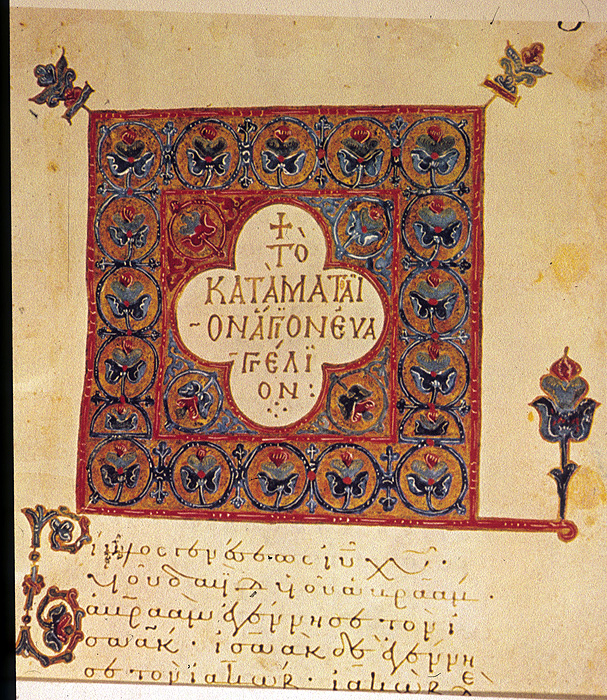 +
ΤῸ
ΚΑΤᾺ ΜΑΤΘΑΪ
ΟΝ ἍΓΙΟΝ ἘΥΑ
ΓΓΈΛΪ
ΟΝ:
Βίβλος γενέσεως ἰῦ χῦ ·
υἱοῦ δαδ υἱοῦ ἀβραάμ ·
ἀβραὰμ ἐγέννησε τὸν ἰ
σαάκ · ἰσαὰκ δὲ ἐγέννη
σε τὸν ἰακώβ · ἰακὼβ δὲ